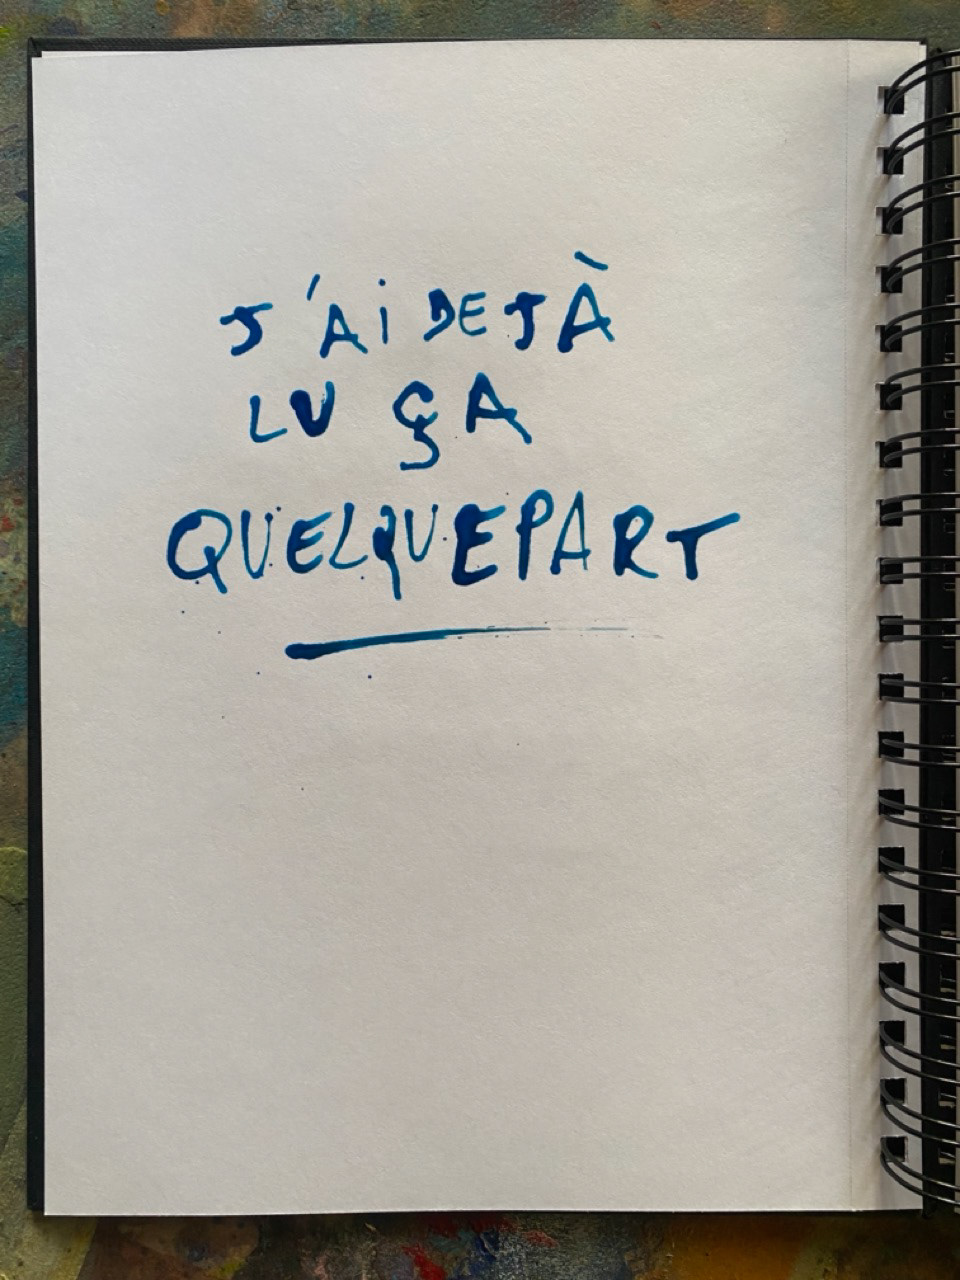 J'AI DEJÀ
LU ÇA
QUELQUEPART